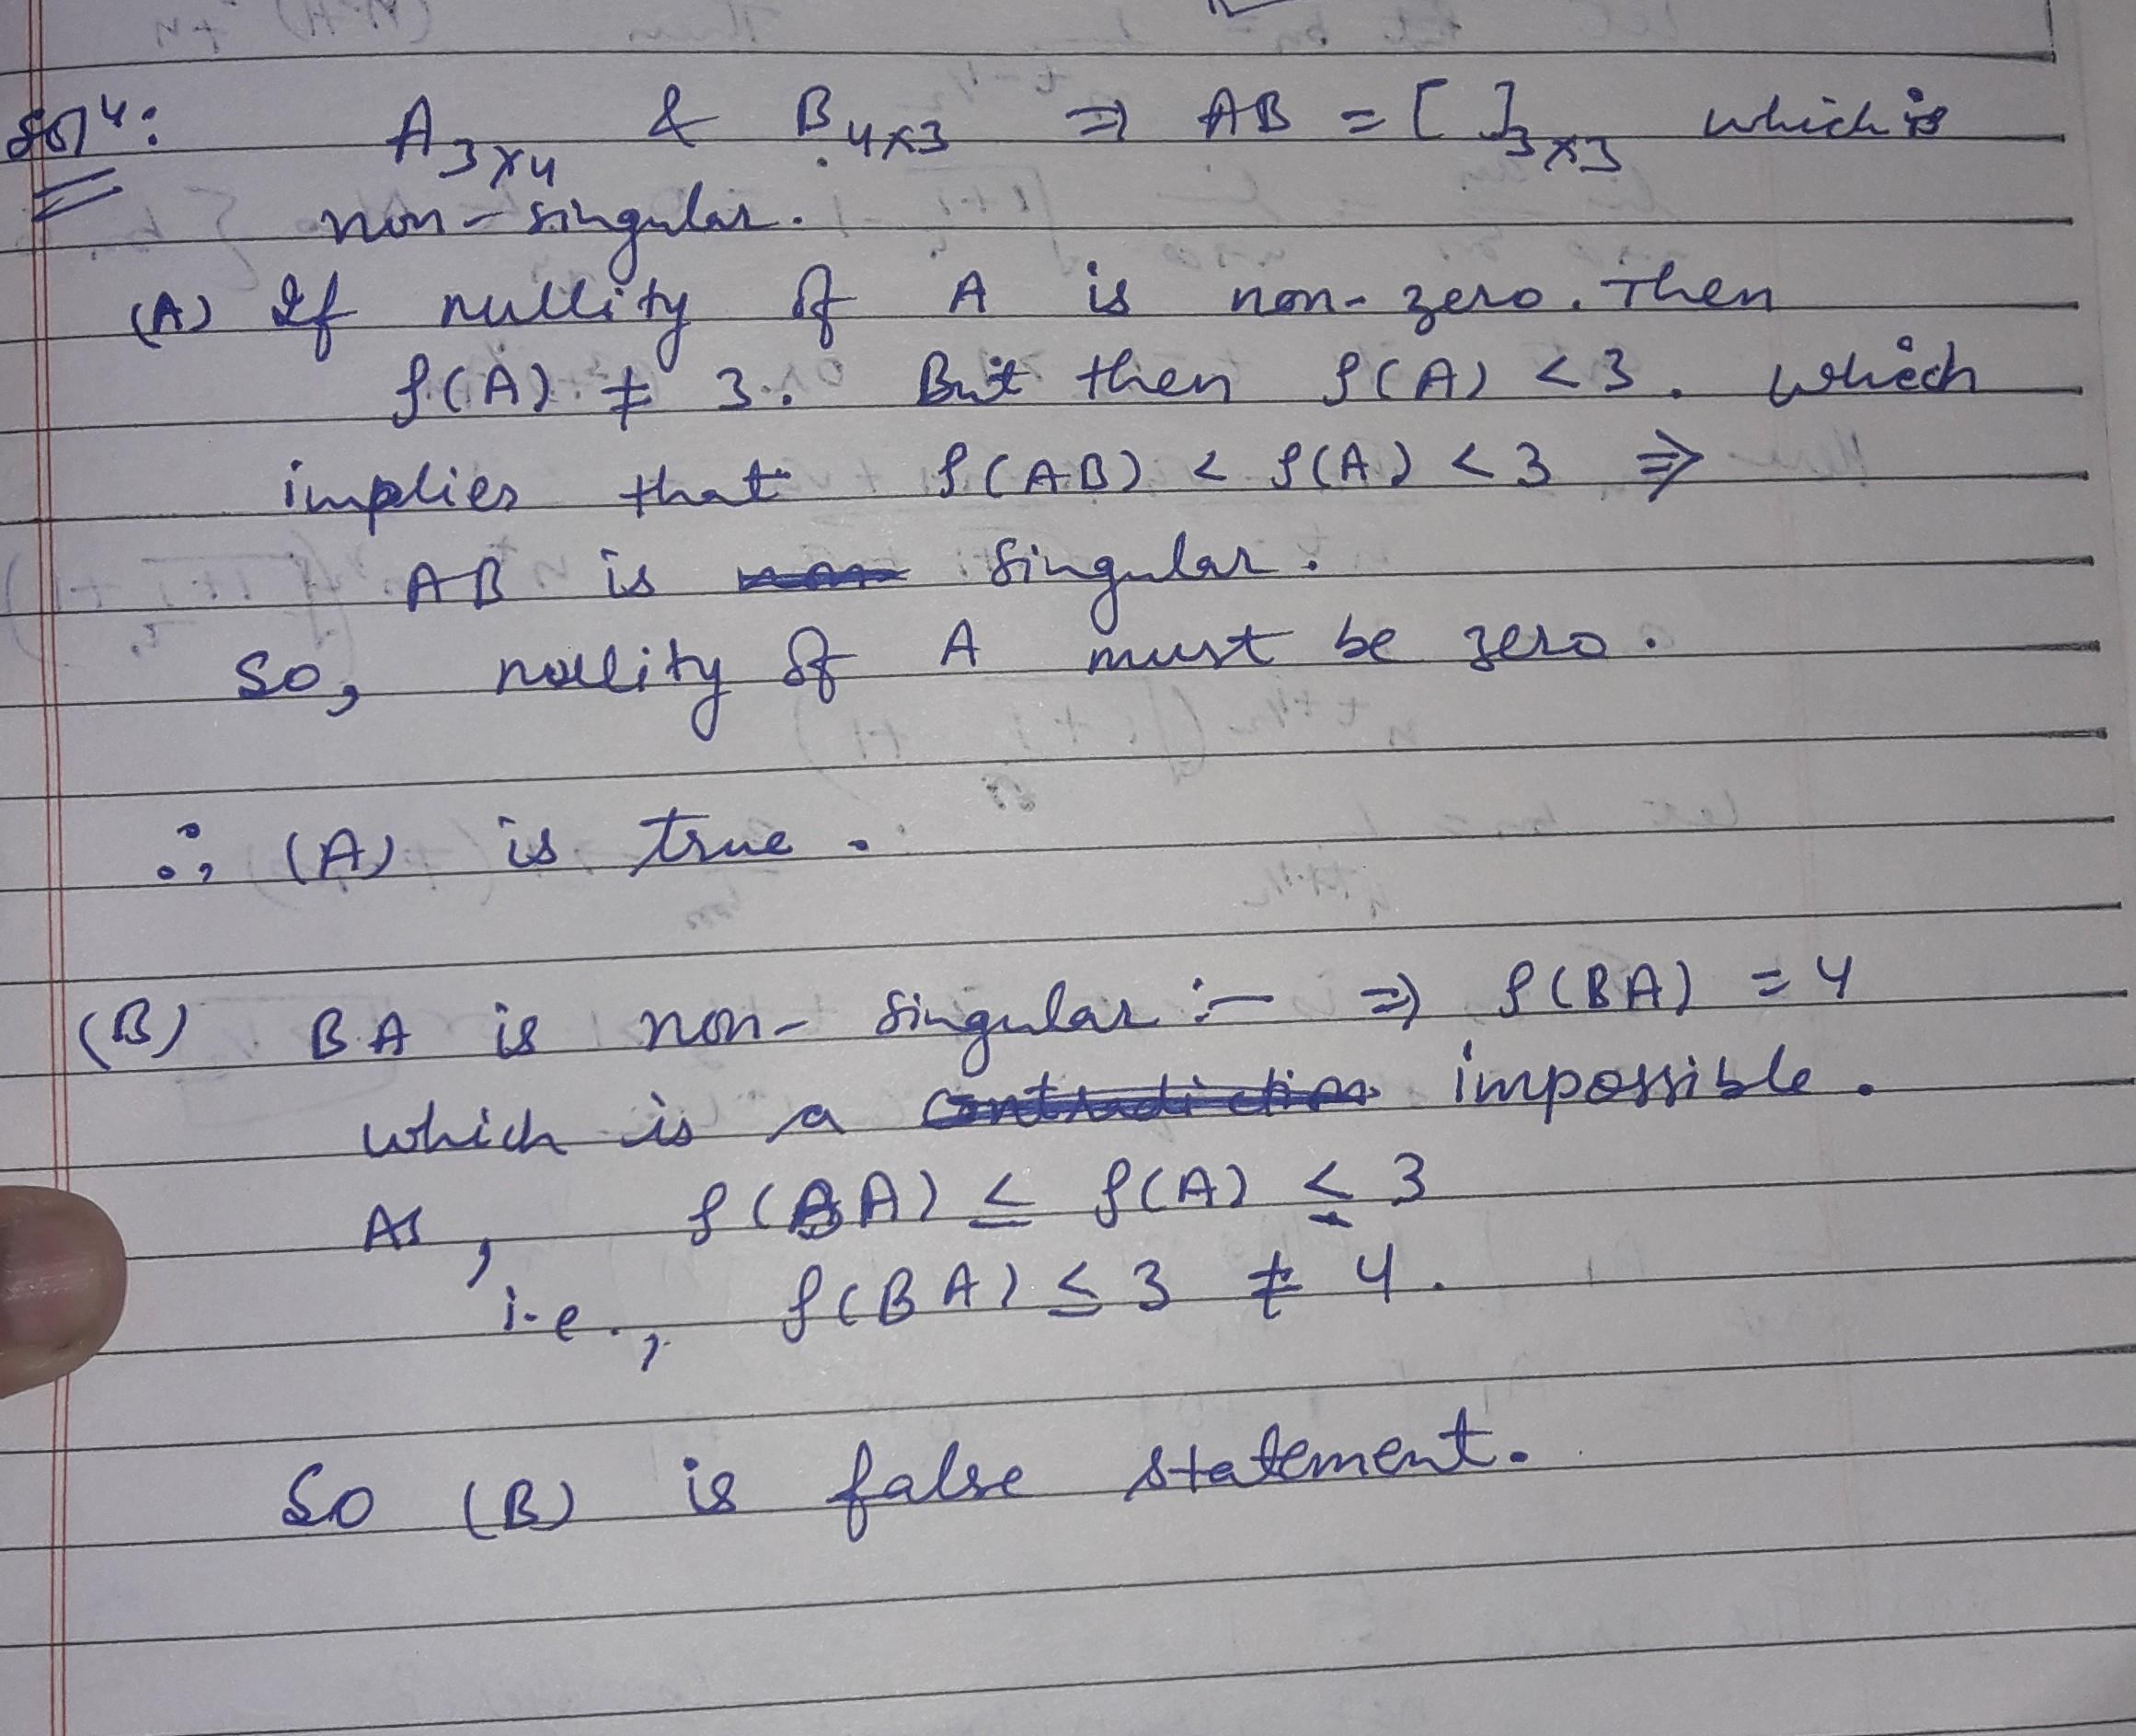 Solⁿ: A₃ₓ₄ & B₄ₓ₃ ⇒ AB = [ ]₃ₓ₃ which is
non-singular.
(A) If nullity of A is non-zero. Then
ρ(A) ≠ 3. But then ρ(A) < 3. which
implies that ρ(AB) < ρ(A) < 3 ⇒
AB is singular.
So, nullity of A must be zero.
∴, (A) is true.
(B) BA is non-singular :- ⇒ ρ(BA) = 4
which is a contradiction impossible.
As, ρ(BA) ≤ ρ(A) ≤ 3
i.e., ρ(BA) ≤ 3 ≠ 4.
So (B) is false statement.